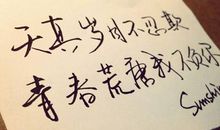 天真岁月不忍欺
青春荒唐我不负你
Sunshi